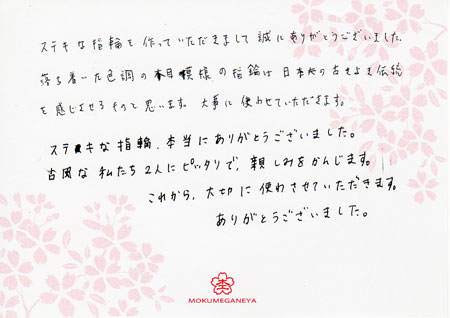 ステキな指輪を作っていただきまして誠にありがとうございました。
落ち着いた色調の木目模様の指輪は日本の古きよき伝統
を感じさせるものと思います。大事に使わせていただきます。
ステキな指輪、本当にありがとうございました。
古風な私たち2人にピッタリで、親しみをかんじます。
これから、大切に使わさせていただきます。
ありがとうございました。
MOKUMEGANEYA